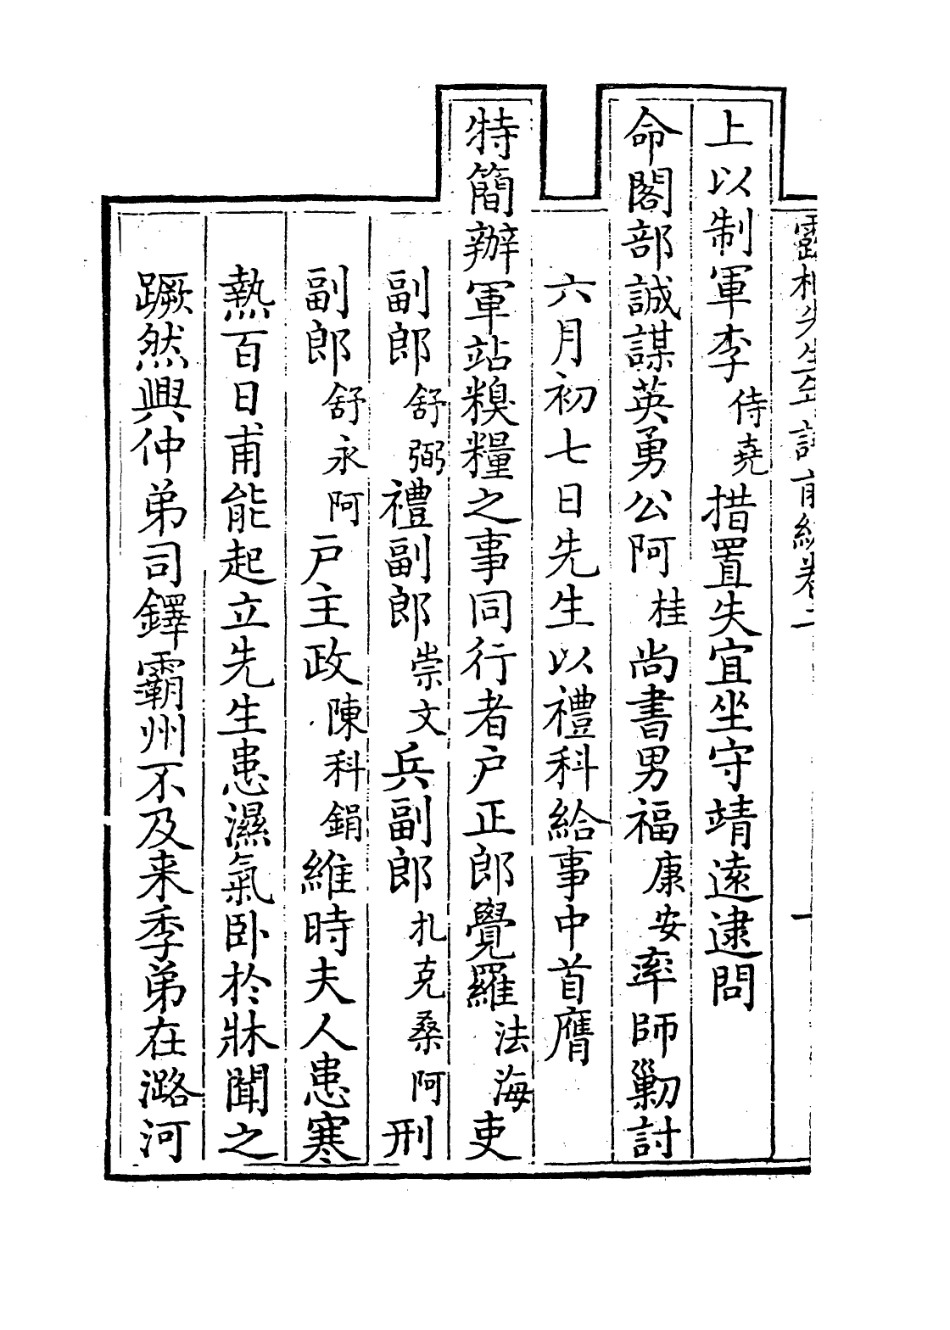 露桐先生年譜前編卷二
上以制軍李侍堯措置失宜坐守靖遠逮問
命閣部誠謀英勇公阿桂尚書男福康安率師勦討
六月初七日先生以禮科給事中首膺
特簡辦軍站糗糧之事同行者户正郎覺羅法海吏
副郎舒弼禮副郎崇文兵副郎扎克桑阿刑
副郎舒永阿户主政陳科鋗維時夫人患寒
熱百日甫能起立先生患濕氣卧於牀聞之
蹶然興仲弟司鐸霸州不及来季弟在潞河